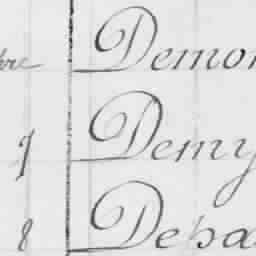 bre Demon
7 Demy
8 Depa